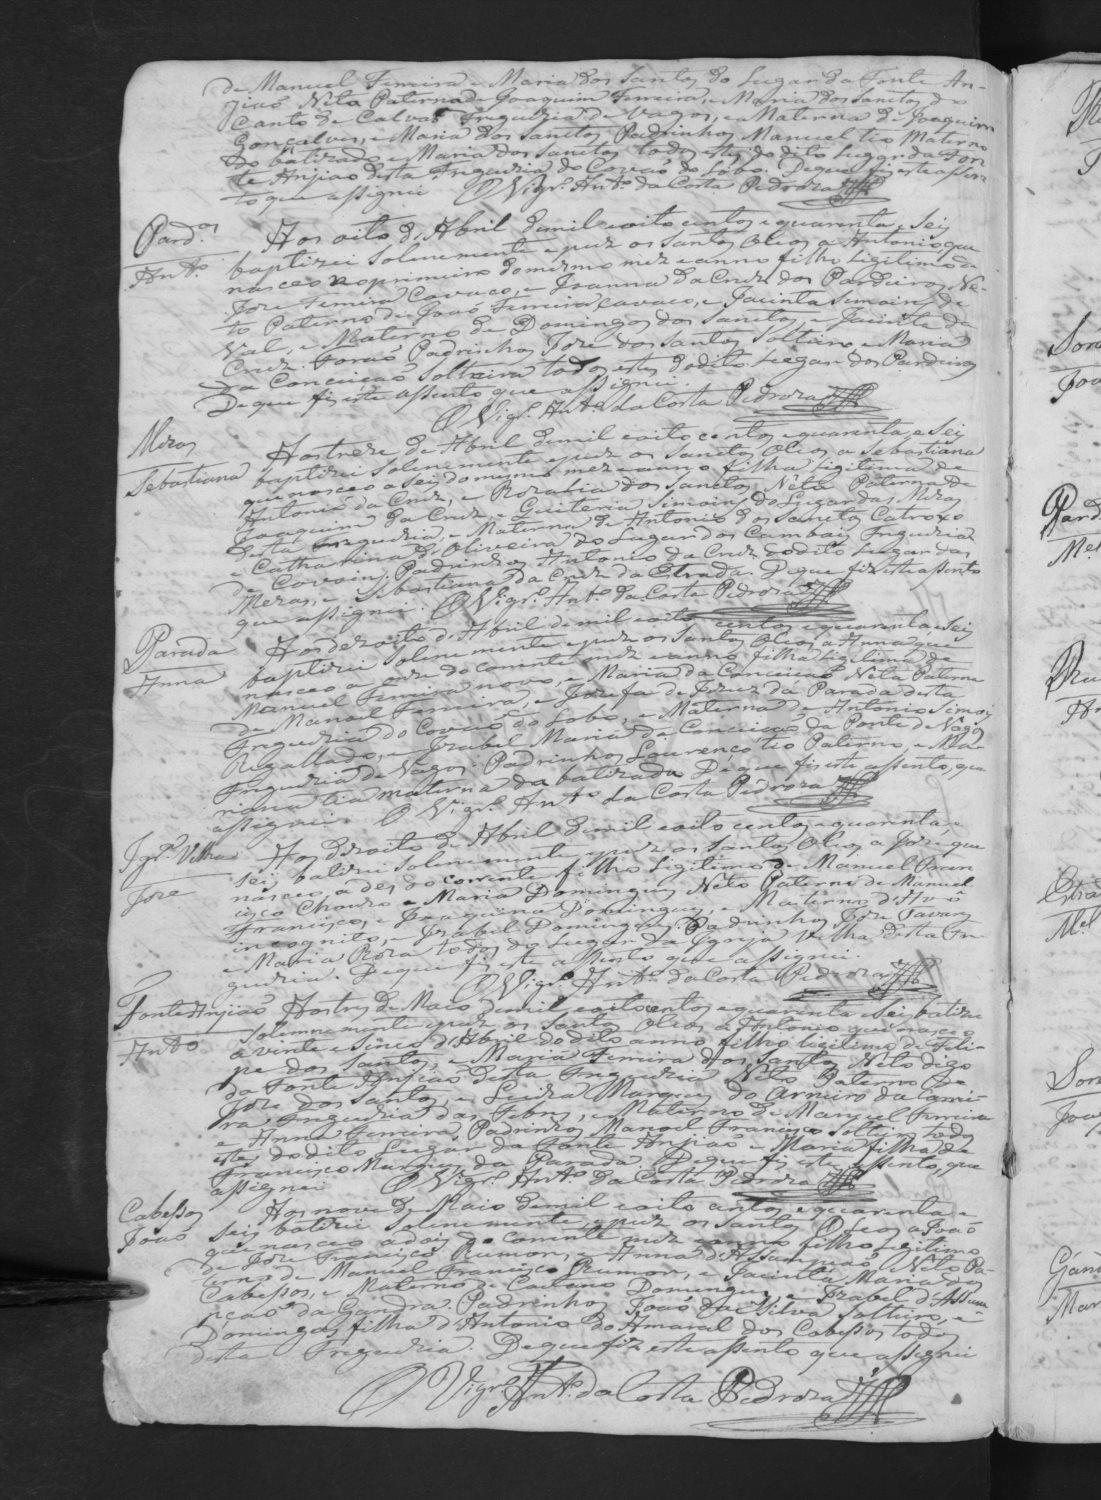 de Manuel Ferreira e Maria dos Santos do Lugar da Fonte An-
jiaõ Neta Paterna de Joaquim Ferreira, e Maria dos Santos do
Canto de Calvaõ Freguezia de Vagos, e Materna de Joaquim
Gonçalves, e Maria dos Santos Padrinhos Manuel tio Materno
do batizado, e Maria dos Santos todos estes do dito Lugar da Fon
te Anjiaõ desta Freguezia do Covaõ do Lobo. De que fiz este assen
to que assignei O Vigr.º Ant.º da Costa Pedroza
Pard.os
Ant.º
Aos oito d'Abril de mil e oito centos e quarenta e Seis
baptizei Solenemente e puz os Santos Oleos a Antonio que
nasceo no primeiro do mesmo mez e anno filho Ligitimo de
Joze Ferreira Cavaco, e Joanna da Cruz dos Pardeiros Ne-
to Paterno de Joaõ Ferreira Cavaco, e Jacinta Simoins de
Val, e Materno de Domingos dos Santos, e Jacinta da
Cruz. Foraõ Padrinhos Joze dos Santos Solteiro e Maria
da Conceiçaõ Solteira todos estes do dito Lugar dos Pardeiros
De que fiz este assento que assignei.
O Vigr.º Ant.º da Costa Pedroza
Mezas
Sebastiana
Aos treze de Abril de mil e oito centos e quarenta e Seis
baptizei Solenemente e puz os Santos Oleos a Sebastiana
que nasceo a Seis do mesmo mez e anno filha Ligitima de
Antonio da Cruz, e Rozalia dos Santos Neta Paterna de
Joaquim da Cruz e Quiteria Simoins do Lugar das Mezas
desta Freguezia, e Materna de Antonio dos Santos Catroxo
e Catharina d'Oliveira do Lugar dos Cambois Freguezia
de Covoins. Padrinhos Antonio da Cruz do dito Lugar das
Mezas, e Sebastiana da Cruz da Estrada. De que fiz este assento
que assignei. O Vigr.º Ant.º da Costa Pedroza
Parada
Anna
Aos dezoito d'Abril de mil e oito centos e quarenta e Seis
baptizei Solenemente e puz os Santos Oleos a Anna que
nasceo a onze do corrente mez e anno filha Ligitima de
Manuel Ferreira novo, e Maria da Conceiçaõ Neta Paterna
de Manoel Ferreira, e Jozefa de Jezus da Parada desta
Freguezia do Covaõ do Lobo, e Materna de Antonio Simois
Regallado, e Izabel Maria da Conceiçaõ da Ponte de Vagos
Freguezia de Vagos. Padrinhos Lourenco tio Paterno, e Ma-
riana tia materna da batizada De que fiz este assento, que
assignei. O Vigr.º Ant.º da Costa Pedroza
Igr.ª Velha
Joze
Aos dezoito de Abril de mil e oito centos e quarenta, e
Seis batizei Solenemente e puz os Santos Oleos a Joze que
nasceo a des do corrente filho Ligitimo de Manuel Fran
cisco Chouzo e Maria Domingues Neto Paterno de Manuel
Francisco, e Joaquina Domingues, e Materno d'Avô
incognito, e Izabel Domingues. Padrinhos Joze Tavares
e Maria Roza todos do Lugar da Igreja Velha desta Fre-
guezia. De que fiz este assento que assignei.
O Vigr.º Ant.º da Costa Pedroza
Fonte Anjiaõ
Ant.º
Aos tres de Maio de mil e oito centos e quarenta e Seis batizei
Solemnemente e puz os Santos Oleos a Antonio que nasceo
a vinte e Sinco d'Abril do dito anno filho legitimo de Feli-
pe dos Santos, e Maria Ferreira dos Santos Neto digo
da Fonte Anjiaõ desta Freguezia Neto Paterno de
Joze dos Santos, e Luiza Marques do Arneiro da Cami-
ra, Freguezia das Febres, e Materno de Manuel Ferreira
e Anna Ferreira, Padrinhos Manoel Francisco Solteiro todos
estes do dito Lugar da Fonte Anjiaõ e Maria filha de
Francisco Marques da Parada De que fiz este assento, que
assignei O Vigr.º Ant.º da Costa Pedroza
Cabeços
Joaõ
Aos nove de Maio de mil e oito centos e quarenta e
Seis batizei Solenemente e puz os Santos Oleos a Joaõ
que nasceo a dois do corrente mez e anno filho legitimo
de Joze Francisco Rumor, e Anna d'Assumpçaõ Neto Pa-
terno de Manuel Francisco Rumor, e Jacinta Maria dos
Cabeços, e Materno de Caetano Domingues e Izabel d'Assum
pçaõ da Gandra. Padrinhos Joaõ da Silva Solteiro, e
Domingas filha d'Antonio do Amaral dos Cabeços todos
desta Freguezia. De que fiz este assento que assignei
O Vigr.º Ant.º da Costa Pedroza